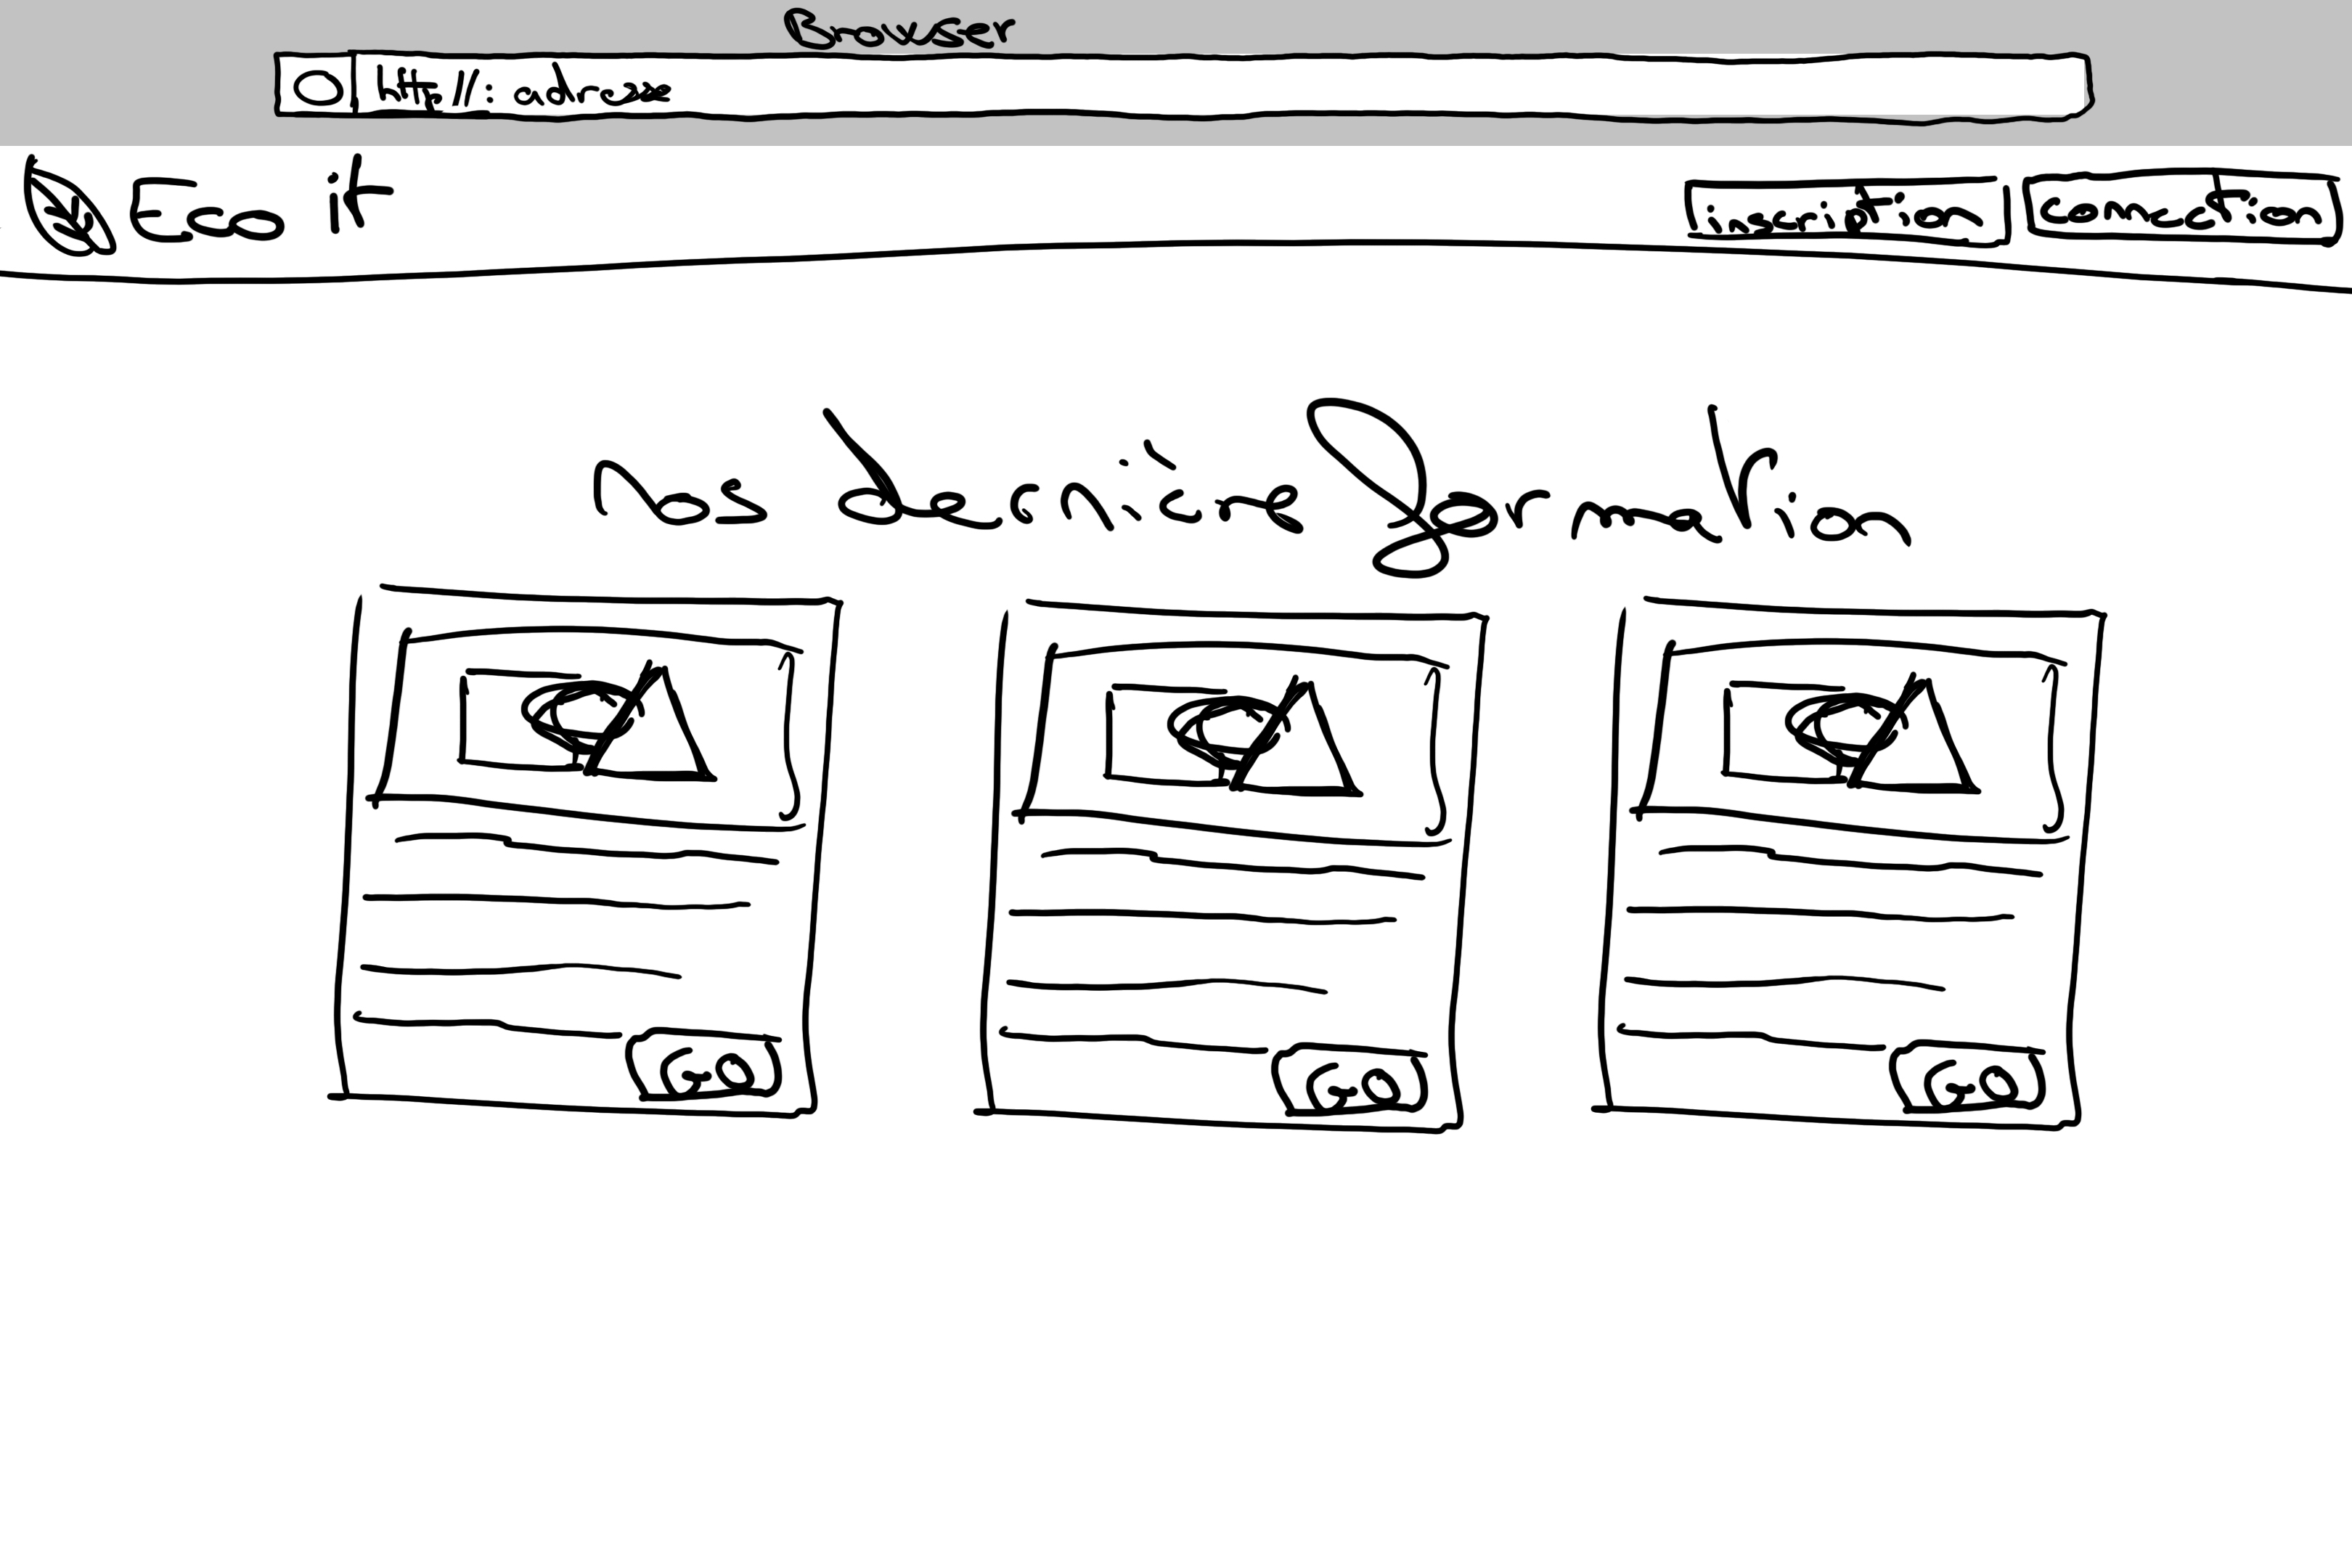 Browser
http//: adresse
Eco it
inscription
connection
Nos dernière formation
GO
GO
GO